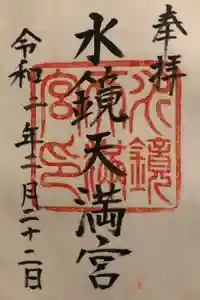 奉拝
水鏡天満宮
令和二年二月二十二日
水鏡
天満
宮印